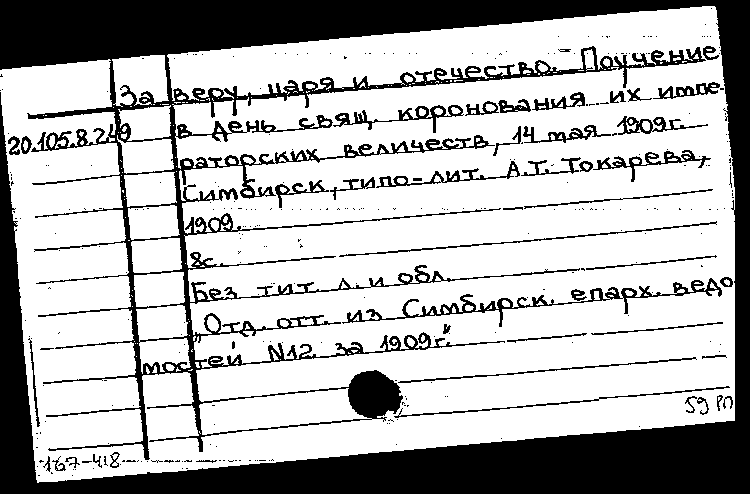 За веру, царя и отечество. Поучение
20.105.8.249 в день свящ. коронования их импе-
раторских величеств, 14 мая 1909г.
Симбирск, типо-лит. А.Т. Токарева,
1909.
8с.
Без тит. л. и обл.
„Отд. отт. из Симбирск. епарх. ведо
мостей N12 за 1909г."
59 РП
167-418